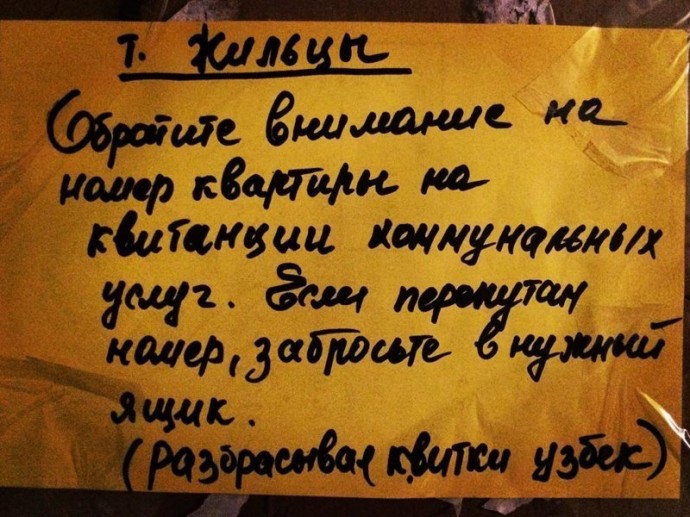 т. жильцы
Обратите внимание на
номер квартиры на
квитанции коммунальных
услуг. Если перепутан
номер, забросьте в нужный
ящик.
(разбрасывал квитки узбек)